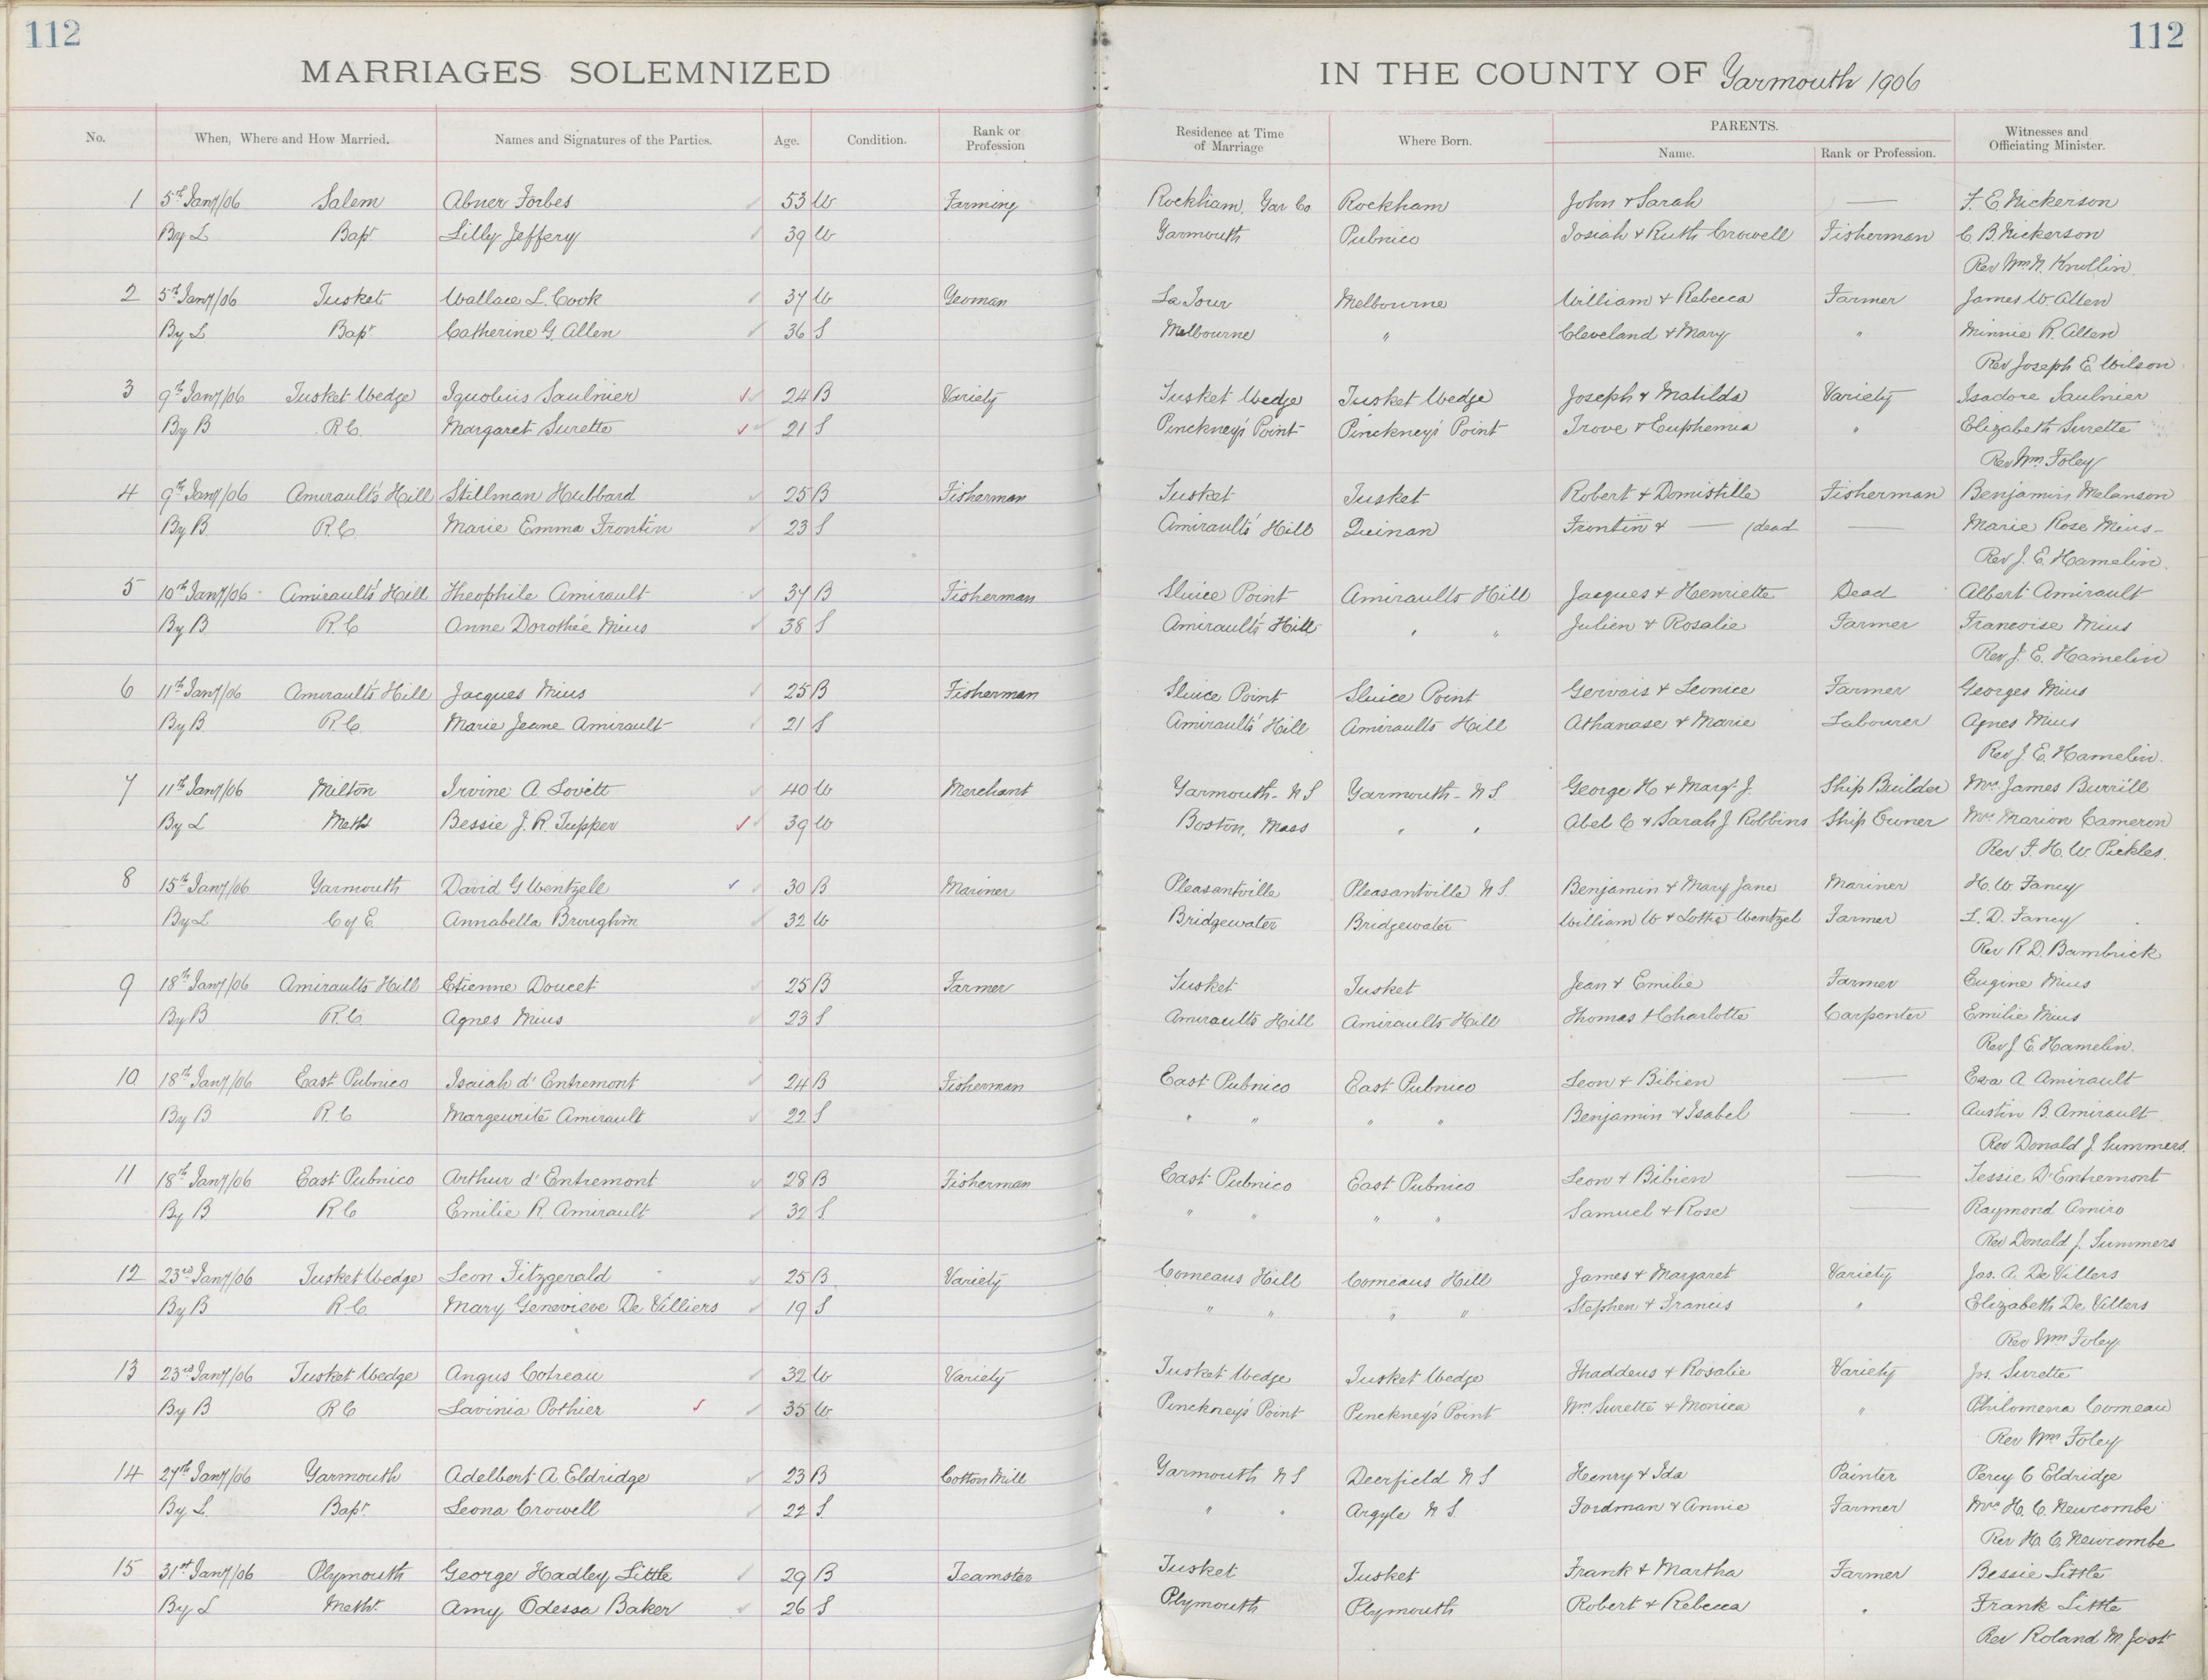 112 112
MARRIAGES SOLEMNIZED IN THE COUNTY OF Yarmouth 1906
No. When, Where and How Married. Names and Signatures of the Parties. Age. Condition. Rank or Profession Residence at Time of Marriage Where Born. PARENTS. Name. Rank or Profession. Witnesses and Officiating Minister.
1 5th Jany/06 Salem Abner Forbes 53 W Farming Rockham, Yar Co Rockham John & Sarah — F. E. Nickerson
By L Bapt Lilly Jeffery 39 W Yarmouth Pubnico Josiah & Ruth Crowell Fisherman C. B. Nickerson
Rev Wm N. Knollin.
2 5th Jany/06 Tusket Wallace L. Cook 37 W Yeoman La Tour Melbourne William & Rebecca Farmer James W. Allen
By L Bapt Catherine G. Allen 36 S Melbourne " Cleveland & Mary " Minnie R. Allen
Rev Joseph E. Wilson
3 9th Jany/06 Tusket Wedge Saulnier 24 B Variety Tusket Wedge Tusket Wedge Joseph & Matilda Variety Isadore Saulnier
By B R.C. Margaret Surette 21 S Pinckney's Point Pinckney's Point Trove & Euphemia " Elizabeth Surette
Rev Wm. Foley
4 9th Jany/06 Amirault's Hill Stillman Hubbard 25 B Fisherman Tusket Tusket Robert & Domistille Fisherman Benjamin Melanson
By B. R.C. Marie Emma Frontin 23 S Amirault's Hill Quinan Frontin & — (dead — Marie Rose Mius
Rev J. E. Hamelin.
5 10th Jany/06 Amirault's Hill Theophile Amirault 37 B Fisherman Sluice Point Amiraults Hill Jacques & Henriette Dead Albert Amirault
By B. R.C Anne Dorothée Mius 38 S Amirault's Hill " " Julien & Rosalie Farmer Francoise Mius
Rev J. E. Hamelin
6 11th Jany/06 Amirault's Hill Jacques Mius 25 B Fisherman Sluice Point Sluice Point Gervais & Leonice Farmer Georges Mius
By B. R.C. Marie Jeane Amirault 21 S Amirault's Hill Amiraults Hill Athanase & Marie Labourer Agnes Mius
Rev J. E. Hamelin.
7 11th Jany/06 Milton Irvine A. Lovitt 40 W Merchant Yarmouth - N S Yarmouth - N S. George H & Margt J. Ship Builder Mrs James Burrill
By L Meth Bessie J. R. Tupper 39 W Boston, Mass " " Abel C & Sarah J Robbins Ship Owner Mrs Marion Cameron
Rev F. H. W. Pickles.
8 15th Jany/06 Yarmouth David G Wentzell 30 B Mariner Pleasantville Pleasantville N S. Benjamin & Mary Jane Mariner H. W. Fancy
By L C of E. Annabella Broughm 32 W Bridgewater Bridgewater William W & Lottie Wentzel Farmer L. D. Fancy
Rev R D. Bambrick
9 18th Jany/06 Amiraults Hill Etienne Doucet 25 B Farmer Tusket Tusket Jean & Emilie Farmer Eugine Mius
By B R.C. Agnes Mius 23 S Amiraults Hill Amiraults Hill Thomas & Charlotte Carpenter Emilie Mius
Rev J E. Hamelin.
10 18th Jany/06 East Pubnico Isaiah d'Entremont 24 B Fisherman East Pubnico East Pubnico Leon & Bibien — Eva A Amirault
By B R.C Margeurite Amirault 22 S " " " " Benjamin & Isabel — Austin B. Amirault
Rev Donald J. Summers.
11 18th Jany/06 East Pubnico Arthur d'Entremont 28 B Fisherman East Pubnico East Pubnico Leon & Bibien — Jessie D'Entremont
By B. R.C Emilie R. Amirault 32 S. " " " " Samuel & Rose — Raymond Amiro
Rev Donald J. Summers
12 23rd Jany/06 Tusket Wedge Leon Fitzgerald 25 B. Variety Comeaus Hill Comeaus Hill James & Margaret Variety Jas. A. De Villers
By B R.C. Mary Genevieve De Villiers 19 S " " " " Stephen & Francis " Elizabeth De Villers
Rev Wm Foley
13 23rd Jany/06 Tusket Wedge Angus Cotreau 32 W Variety Tusket Wedge Tusket Wedge Thaddeus & Rosalie Variety Jos. Surette
By B R C Lavinia Pothier 35 W. Pinckney's Point Pinckney's Point Wm Surette & Monica " Philomena Comeau
Rev Wm Foley
14 27th Jany/06 Yarmouth Adelbert A. Eldridge 23 B Cotton Mill Yarmouth N S Deerfield N S Henry & Ida Painter Percy C Eldridge
By L. Bapt. Leona Crowell 22 S. " " Argyle N S. Fordman & Annie Farmer Mrs H. C. Newcombe
Rev H. C. Newcombe
15 31st Jany/06 Plymouth George Hadley Little 29 B Teamster Tusket Tusket Frank & Martha Farmer Bessie Little
By L Metht. Amy Odessa Baker 26 S Plymouth Plymouth Robert & Rebecca " Frank Little
Rev Roland M. Jost